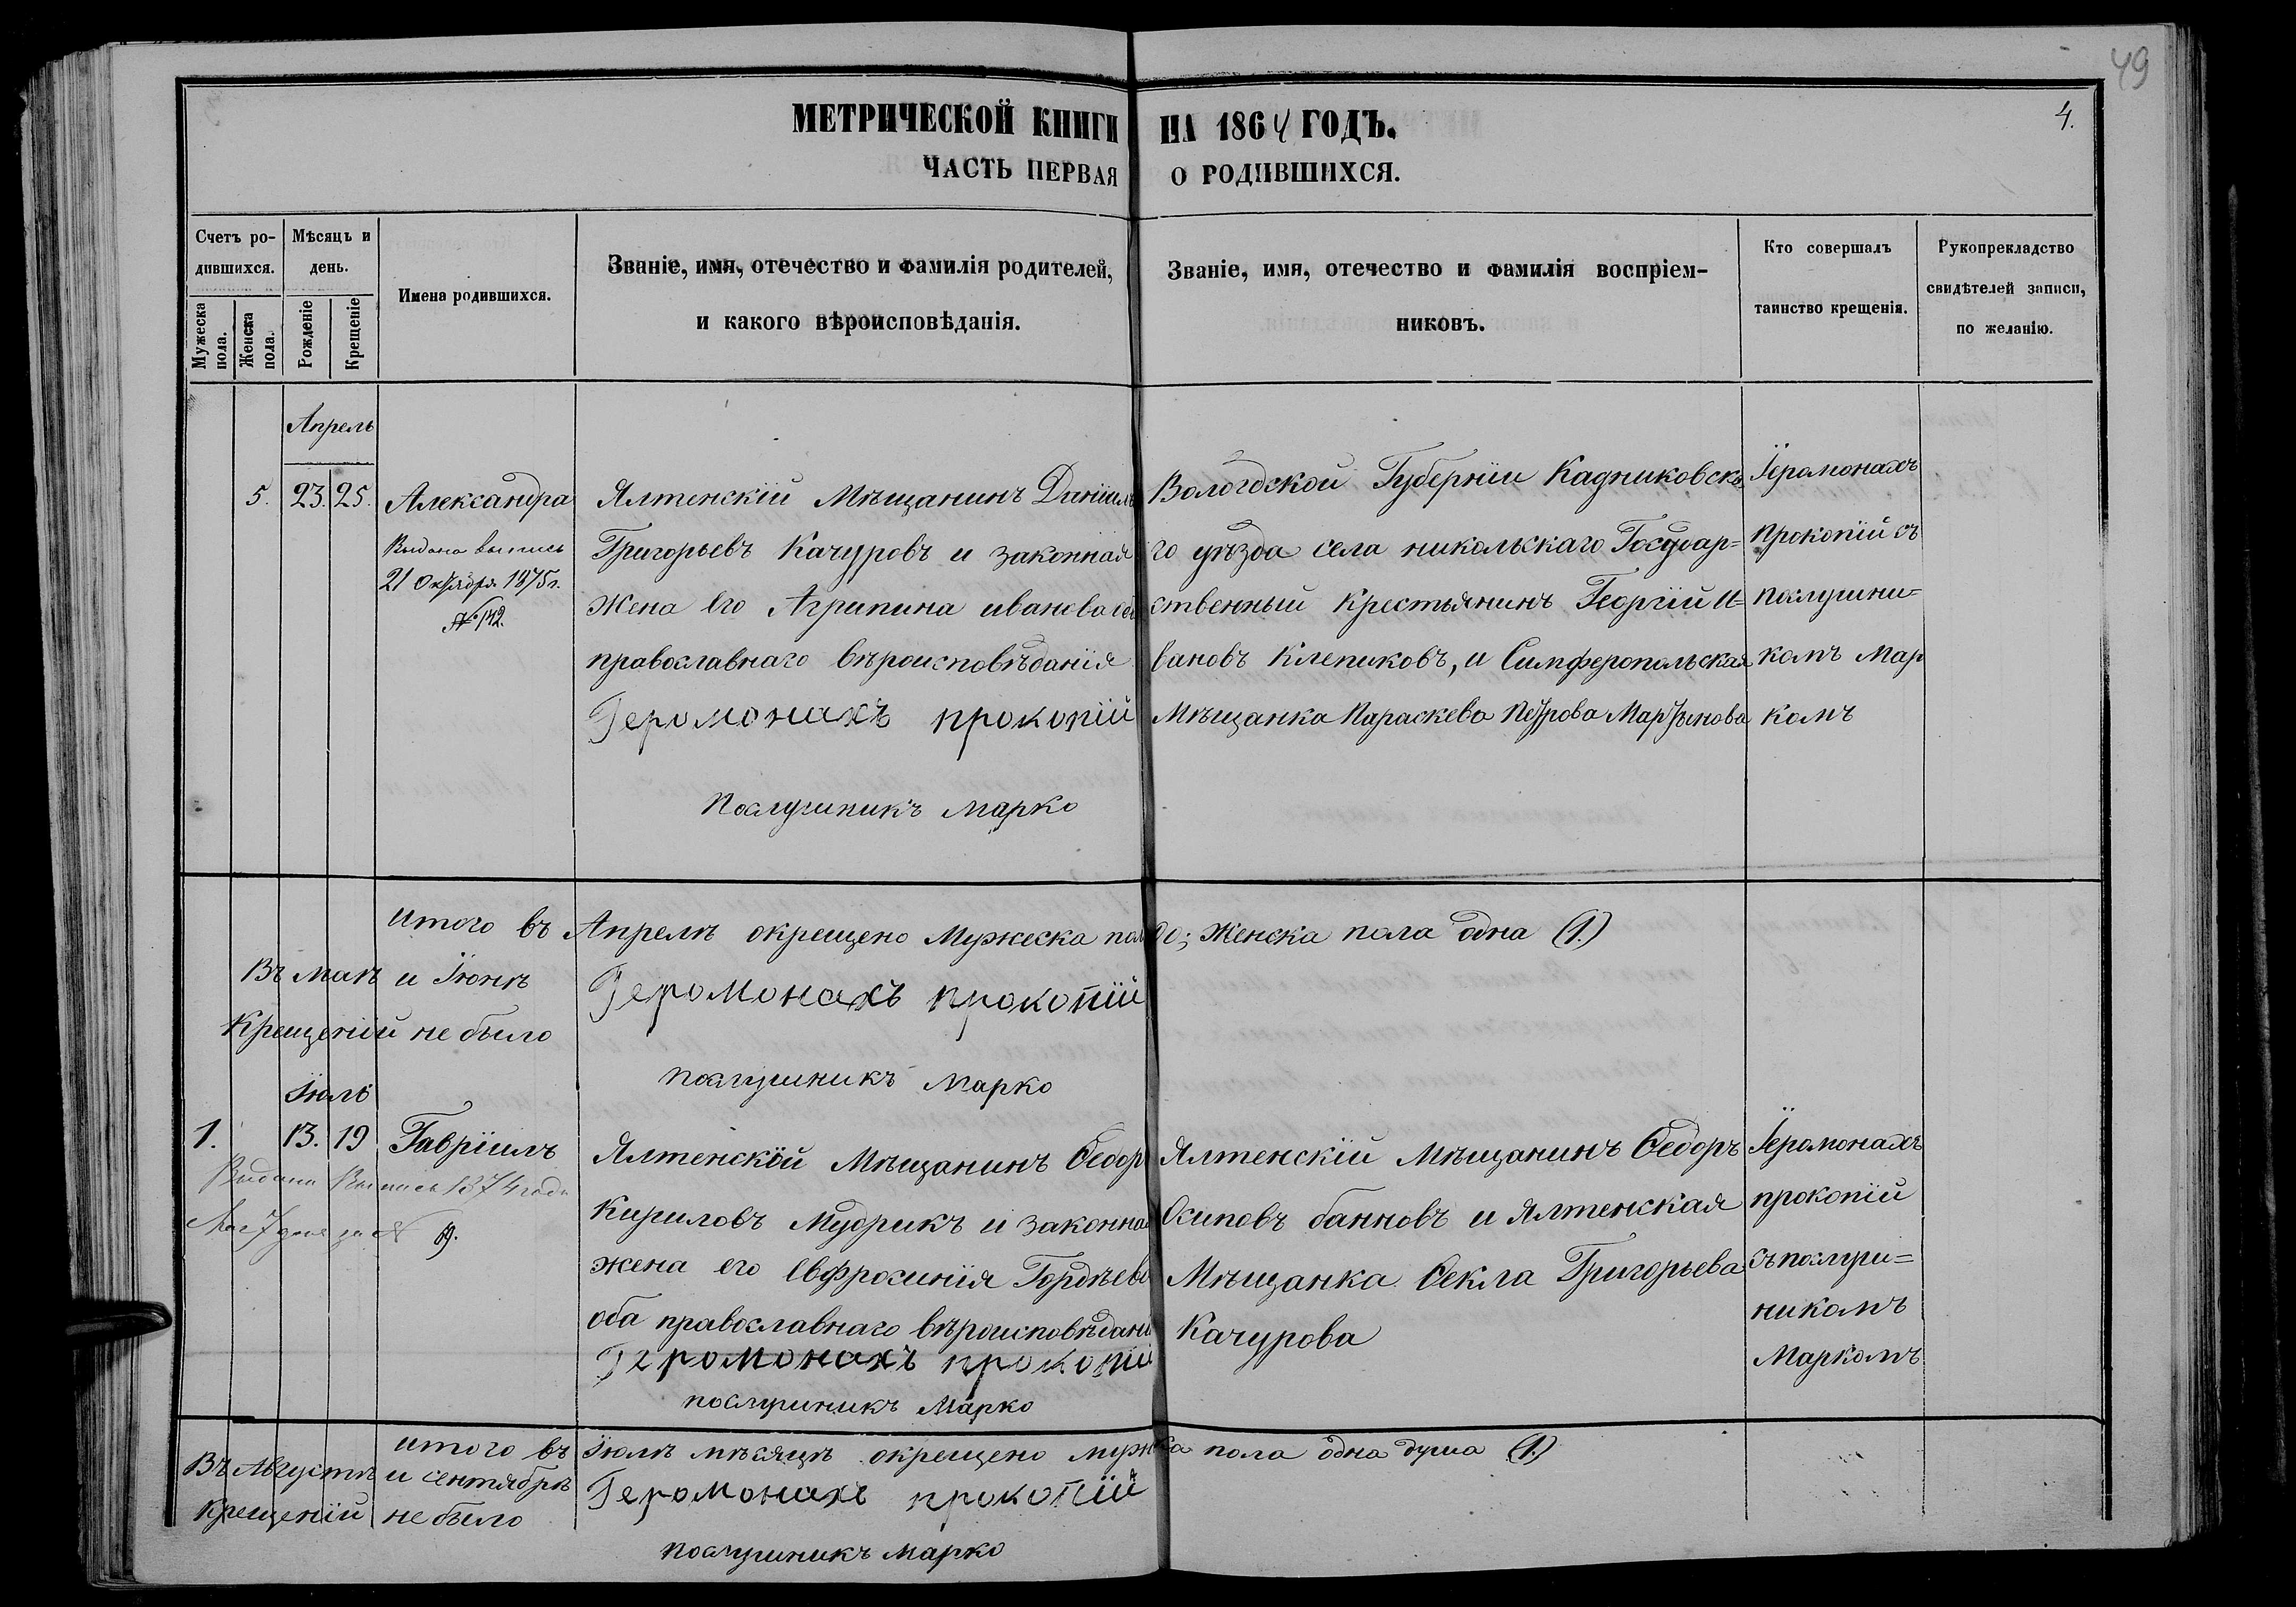 49
4.
МЕТРИЧЕСКОЙ КНИГИ НА 1864 ГОДЪ.
ЧАСТЬ ПЕРВАЯ О РОДИВШИХСЯ.
Счетъ ро-
дившихся.
Мужеска
пола.
Женска
пола.
Мѣсяцъ и
день.
Рожденіе
Крещеніе
Имена родившихся.
Званіе, имя, отечество и фамилія родителей,
и какого вѣроисповѣданія.
Званіе, имя, отечество и фамилія воспріем-
никовъ.
Кто совершалъ
таинство крещенія.
Рукоприкладство
свидѣтелей записи,
по желанію.
Апрель
5. 23. 25. Александра
Выдана выпись
21 Октября 1875 г.
№ 142.
Ялтенскій Мѣщанинъ Даніилъ
Григорьевъ Качуровъ и законная
Жена его Агрипина иванова оба
православнаго вѣроисповѣданія
Іеромонахъ прокопій
Послушникъ Марко
Вологодской Губерніи Кадниковска
го уѣзда села никольскаго Государ=
ственный крестьянинъ Георгій И=
вановъ Клепиковъ, и Симферопольская
Мѣщанка Параскева Петрова Мартынова
Іеромонахъ
Прокопій съ
послушни=
комъ Мар
комъ
итого въ Апрелѣ окрещено Мужеска пола 00; Женска пола одна (1.)
Въ маѣ и Іюнѣ
Крещеній не было
Іеромонахъ прокопій
послушникъ Марко
Іюль
1. 13. 19 Гавріилъ
Выдана Выпись 1874 года
Мая 7 дня за № 19.
Ялтенскій Мѣщанинъ Ѳедор
Кириловъ Мудрикъ и законная
жена его Евфросинія Гордѣева
оба православнаго вѣроисповѣдані
Іеромонахъ прокопій
послушникъ Марко
Ялтенскій Мѣщанинъ Ѳедоръ
Осиповъ банновъ и Ялтенская
Мѣщанка Ѳекла Григорьева
Качурова
Іеромонахъ
прокопій
съ послуш=
никомъ
Маркомъ
итого въ Іюлѣ мѣсяцѣ окрещено мужска пола одна душа (1.)
Въ Августѣ и сентябрѣ
крещеній не было
Іеромонахъ прокопій
послушникъ Марко